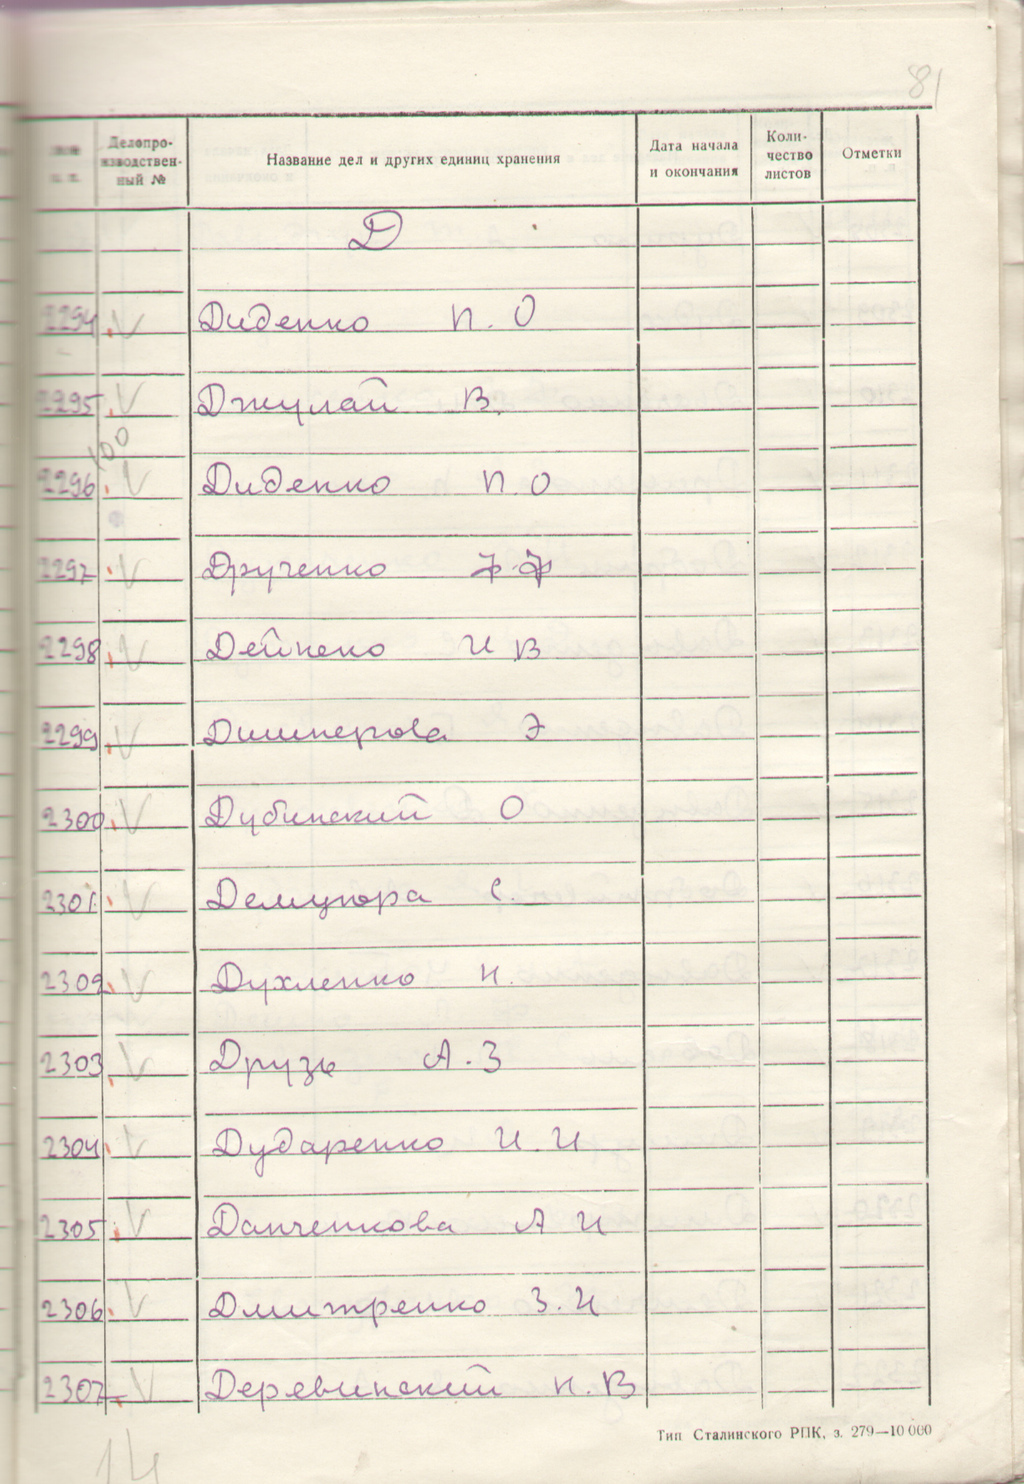 81
Делопро-
изводствен-
ный №
Название дел и других единиц хранения
Дата начала
и окончания
Коли-
чество
листов
Отметки
п. п.
Д
2294 V Диденко П. О
2295 V Джулай В.
100
2296 V Диденко П. О
2297 V Друченко Ф. Ф
2298 V Дейнеко И В
2299 V Э
2300 V Дубинский О
2301 V Демцюра С.
2302 V Духленко Н.
2303 V Друзь А. З
2304 V Дударенко И. И
2305 V Данченкова А И
2306 V Дмитренко З. И
2307 V Деревинский Н. В
Тип Сталинского РПК, з. 279—10 000
14